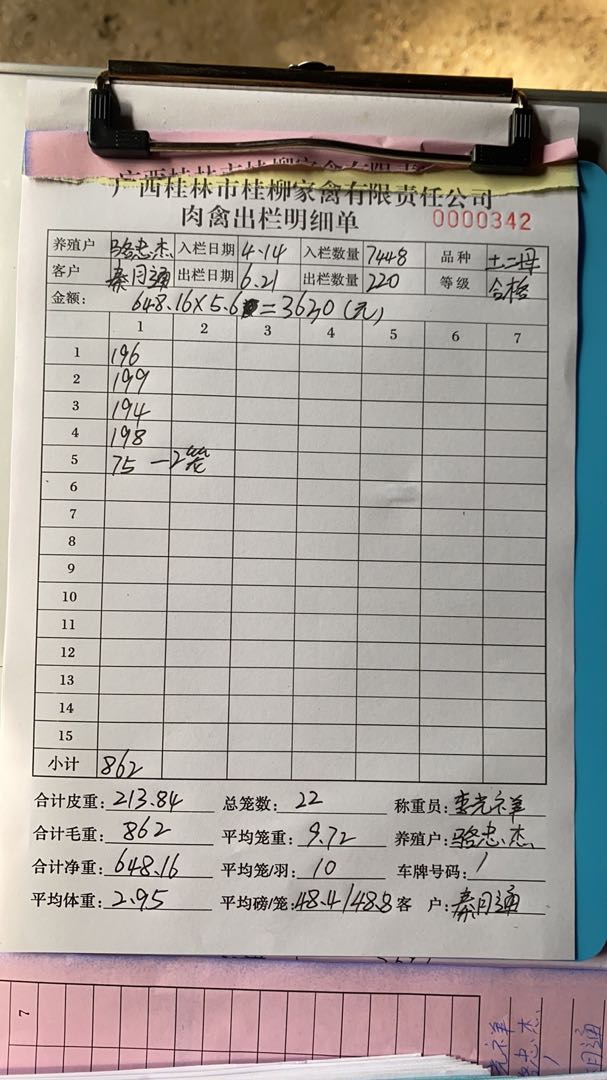 广西桂林市桂柳家禽有限责任公司
肉禽出栏明细单 0000342
养殖户 骆忠杰 入栏日期 4.14 入栏数量 7448 品种 土二母
客户 秦月通 出栏日期 6.21 出栏数量 220 等级 合格
金额: 648.16×5.6 = 3630(元)
1 2 3 4 5 6 7
1 196
2 199
3 194
4 198
5 75 —2笼
6
7
8
9
10
11
12
13
14
15
小计 862
合计皮重: 213.84 总笼数: 22 称重员:
合计毛重: 862 平均笼重: 9.72 养殖户: 骆忠杰
合计净重: 648.16 平均笼/羽: 10 车牌号码: /
平均体重: 2.95 平均磅/笼: 48.4/48.8 客 户: 秦月通
7